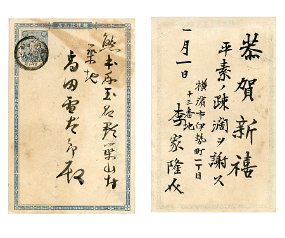 熊本県玉名郡梅林村
築地
高田雪太郎殿
恭賀新禧
平素ノ疎濶ヲ謝ス
一月一日
横濱市伊勢町一丁目
十三番地
李家隆介